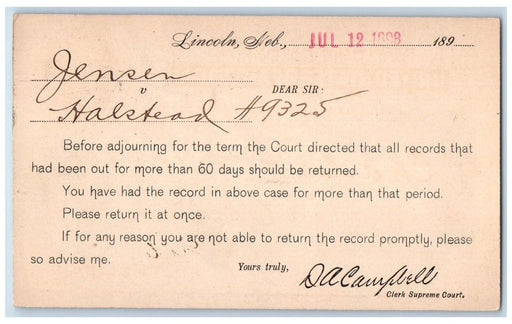 Lincoln, Neb., JUL 12 1898 189
Jensen
v DEAR SIR:
Halstead #9325
Before adjourning for the term the Court directed that all records that
had been out for more than 60 days should be returned.
You have had the record in above case for more than that period.
Please return it at once.
If for any reason you are not able to return the record promptly, please
so advise me.
Yours truly,
D A Campbell
Clerk Supreme Court.